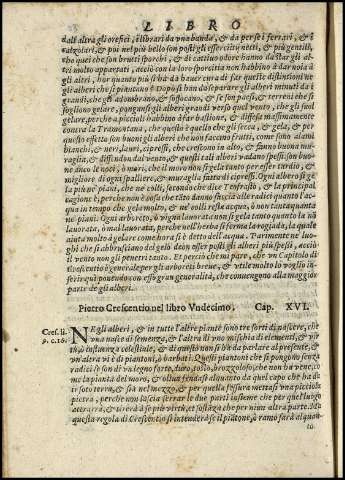 LIBRO
dall'altra gli orefici, i librari da vna banda, & da per se i ferrari, & i
calzolari, & poi nel più bello son posti gli esserciti netti, & più gentili,
quei che son brutti sporchi, & di cattiuo odore hanno da star gli al-
tri molto apparati, acciò con la loro sporcitia non habbino à dar noia à
gli altri, hor quanto più si ha da hauer cura di far queste distintioni ne
gli alberi che si piantano? Dopo si han da separare gli alberi minuti da
grandi, che gli adombrano, & soffocano, & se son paesi, & terreni che si
sogliono gelare, pongansi gli alberi grandi verso quel vento, che gli suol
gelare, perche a piccioli habbino à far bastione, & difesa massimamente
contra la Tramontana, che questo è quello che gli secca, & gela, & per
questo effetto son buoni gli alberi che non faccino frutti, come sono alami
bianchi, & neri, lauri, cipressi, che crescono in alto, & fanno buona mu-
raglia, & diffendon dal vento, & questi tali alberi vadano spessi. son buo-
ne anco le noci, ò muri, che il moro non si gela tanto per esser tardio, &
migliore di ogni spalliere, & muraglia fatta di cipressi. Ogni albero si ge-
la più ne' piani, che ne' colli, secondo che dice Teofrasto, & la principal
cagione è; perche non è cosa che tāto danno faccia alle radici quanto l'ac-
qua in tempo che gela molto, & ne' colli resta l'acqua, ò non tanta quanto
ne' piani. Ogni arboreto, ò vigna lauorata non si gela tanto quanto la nō
lauorata, ò mal lauorata, perche nell'herba si ferma la rogiada, la quale
aiuta molto à gelare come hora si è detto dell'acqua. Parimente ne luo-
ghi che si abbrusciano del gelo deōn esser posti gli alberi più spessi, acciò
da ogni vento non gli penetri tanto. Et perciò che mi pare, che vn Capitolo di
Crescentio è generale per gli arbori breue, & vtile molto lo voglio in-
serir qui ponendo con esso gran generalità, che conuengono alla maggior
parte de gli alberi.
Pietro Crescentio nel libro Vndecimo. Cap. XVI.
Cres. li.
9. c. 16.
NEgli alberi, & in tutte l'altre piante sono tre sorti di nascere, che
vna nasce di semenza, & l'altra di vno mischia di elementi, & vir-
tù, ò instanza celestiale, & di questi non si ha da parlare al presente, &
vn'altra vi è di piantoni, ò barbati. Questi piantoni che si pongono senza
radici se son di vn legno forte, duro, sodo, brozzoloso, che non ha vene, co-
me la pianta del moro, & olliua fendasi alquanto da quel capo che ha da
ir sotto terra, & sia nel mezzo, & per quella fessura mettasi vna picciola
pietra, perche non lascia serrar le due parti insieme che per quel luogo
attrarrà, & tirerà à se più virtù, et sostāza che per niun altra parte. Da
questa regola di Crescentio si intende se il piātone, ò ramo farà alquan-
to